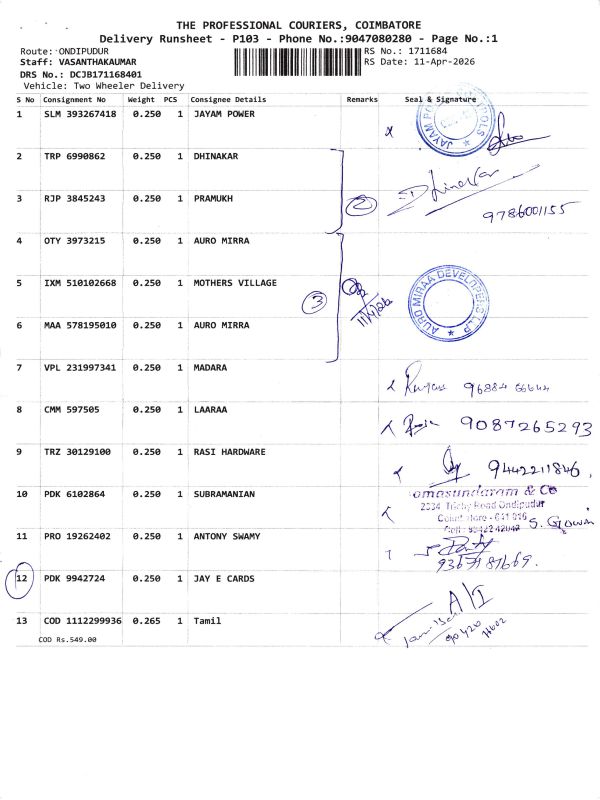 THE PROFESSIONAL COURIERS, COIMBATORE
Delivery Runsheet - P103 - Phone No.:9047080280 - Page No.:1
Route: ONDIPUDUR
RS No.: 1711684
Staff: VASANTHAKAUMAR
RS Date: 11-Apr-2026
DRS No.: DCJB171168401
Vehicle: Two Wheeler Delivery
S No Consignment No Weight PCS Consignee Details Remarks Seal & Signature
1 SLM 393267418 0.250 1 JAYAM POWER
2 TRP 6990862 0.250 1 DHINAKAR Dhinakar
3 RJP 3845243 0.250 1 PRAMUKH 2 9786001155
4 OTY 3973215 0.250 1 AURO MIRRA
5 IXM 510102668 0.250 1 MOTHERS VILLAGE 3 11/4/26 AURO MIRAA DEVELOPERS LLP
6 MAA 578195010 0.250 1 AURO MIRRA
7 VPL 231997341 0.250 1 MADARA
8 CMM 597505 0.250 1 LAARAA 9087265293
9 TRZ 30129100 0.250 1 RASI HARDWARE 9442211846
10 PDK 6102864 0.250 1 SUBRAMANIAN omasundaram & Co
2034 Trichy Road Ondipudur
11 PRO 19262402 0.250 1 ANTONY SWAMY
12 PDK 9942724 0.250 1 JAY E CARDS A/I
13 COD 1112299936 0.265 1 Tamil
COD Rs.549.00